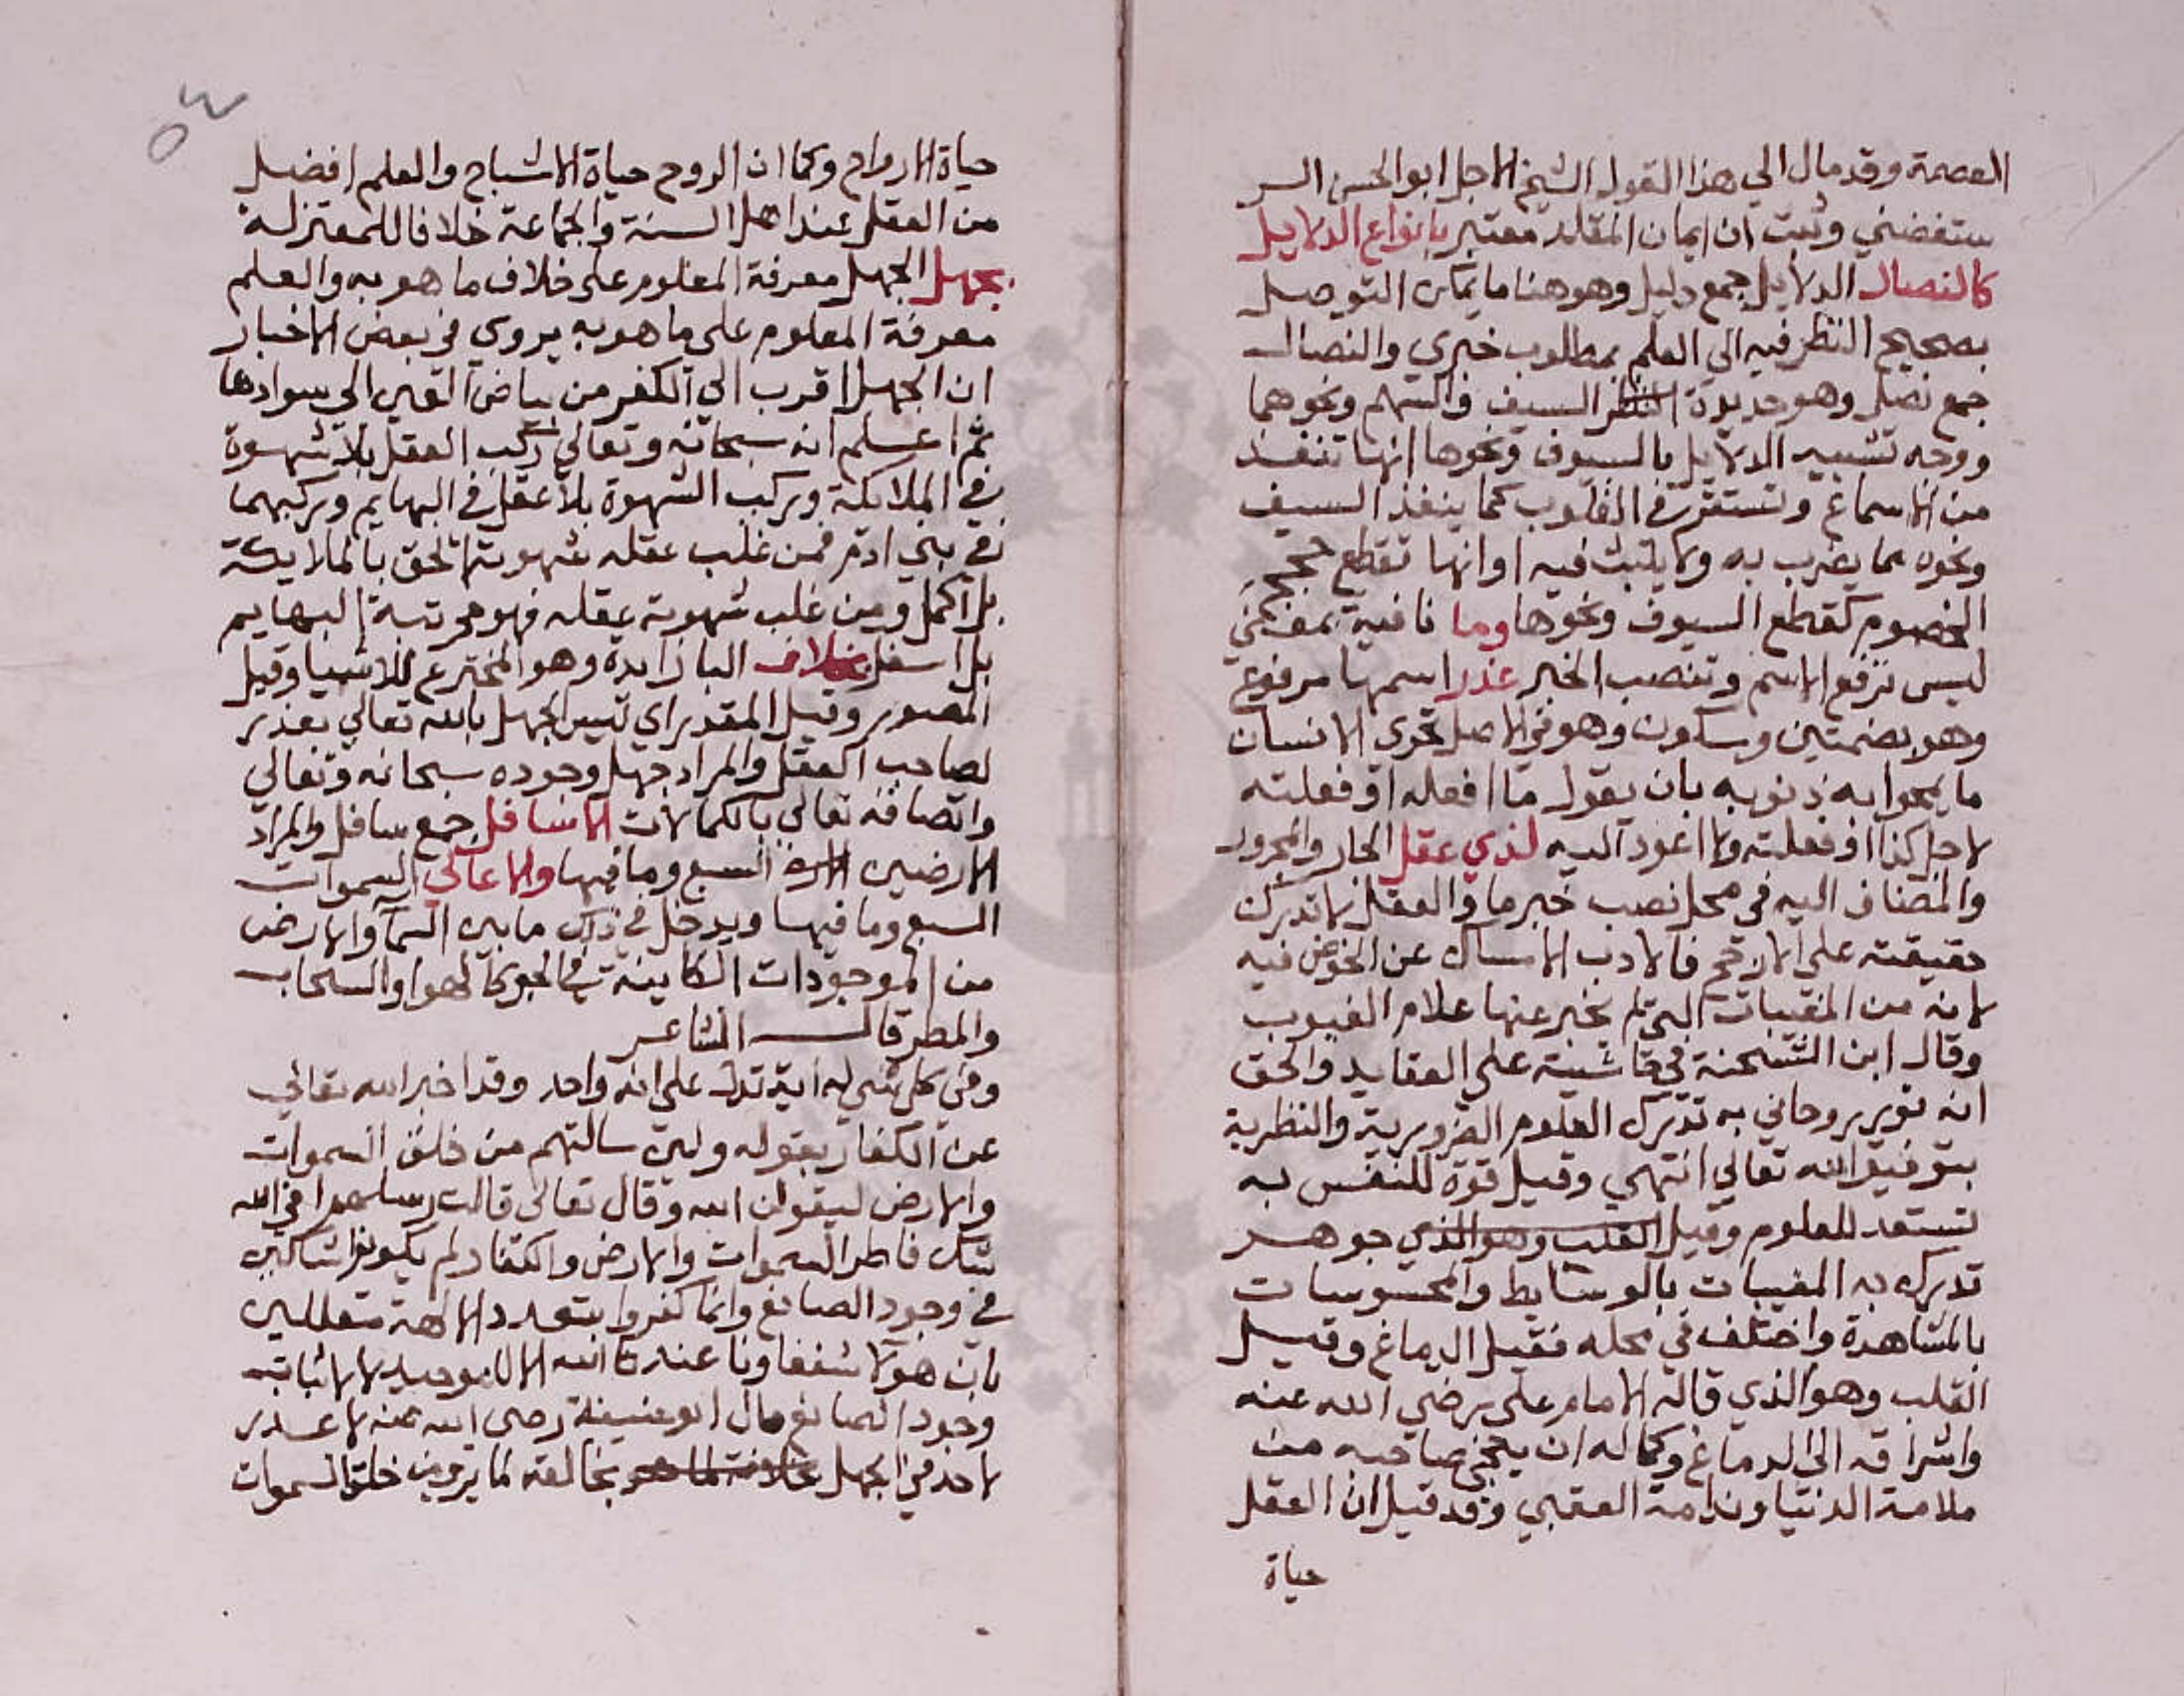 العصمة وقد مال الي هذا القول الشيخ الاجل ابو الحسن السر
ستغفني وثبت ان ايمان المقلد معتبر بانواع الدلايل
كالنصال الدلايل جمع دليل وهو هنا ما يمكن التوصل
بصحيح النظر فيه الي العلم بمطلوب خبري والنصال
جمع نصل وهو حديدة السيف والسهم ونحوهما
ووجه تشبيه الدلايل بالسيوف ونحوها انها تنفذ
من الاسماع وتستقر في القلوب كما ينفذ السيف
ونحوه مما يضرب به ولا يثبت فيه اوانها تقطع حجج
الخصوم كقطع السيوف ونحوها وما نافية بمعني
ليس ترفع الاسم وتنصب الخبر عذر اسمها مرفوع
وهو بضمتين وسكون وهو في الاصل تحري الانسان
ما يمحوا به ذنوبه بان يقول ما افعله او فعلته
لاجل كذا او فعلته ولا اعود اليه لذي عقل الجار والمجرور
والمضاف اليه في محل نصب خبر ما والعقل لا تدرك
حقيقته علي الارجح فالادب الامساك عن الخوض فيه
لانه من المغيبات التي لم يخبر عنها علام الغيوب
وقال ابن الشحنة في حاشية علي العقايد والحق
انه نور روحاني به تدرك العلوم الضرورية والنظرية
بتوفيق الله تعالي انتهي وقيل قوة للنفس به
تستعد للعلوم وقيل القلب وهو الذي جوهر
تدرك به المغيبات بالوسايط والمحسوسات
بالمشاهدة واختلف في محله فقيل الدماغ وقيل
القلب وهو الذي قاله الامام علي رضي الله عنه
واشراقه الي الدماغ وكماله ان ينجي صاحبه من
ملامة الدنيا وندامة العقبي وقد قيل ان العقل
حياة
٥٤
حياة الارواح وكما ان الروح حياة الاشباح والعلم افضل
من العقل عند اهل السنة والجماعة خلافا للمعتزلة
بجهل الجهل معرفة المعلوم علي خلاف ما هو به والعلم
معرفة المعلوم علي ما هو به يروي في بعض الاخبار
ان الجهل اقرب الي الكفر من بياض العين الي سوادها
ثم اعلم انه سبحانه وتعالي ركب العقل بلا شهوة
في الملايكة وركب الشهوة بلا عقل في البهايم وركبهما
في بني ادم فمن غلب عقله شهوته التحق بالملايكة
بل اكمل ومن غلب شهوته عقله فهو مرتبة البهايم
بل اسفل بخلاف البا زايدة وهو المخترع للاشيا وقيل
المصور وقيل المقدر اي ليس الجهل بالله تعالي بعذر
لصاحب العقل والمراد جهل وجوده سبحانه وتعالي
واتصافه تعالي بالكمالات الاسافل جمع سافل والمراد
الارضين السبع وما فيها والاعالي السموات
السبع وما فيها ويدخل في ذلك ما بين السما والارض
من الموجودات الكاينة في الجو كالهوا والسحاب
والمطر قال الشاعر
وفي كل شي له اية تدل علي انه واحد وقد اخبر الله تعالي
عن الكفار بقوله ولين سالتهم من خلق السموات
والارض ليقولن الله وقال تعالي قالت رسلهم افي الله
شك فاطر السموات والارض والكفار لم يكونوا شاكين
في وجود الصانع وانما كفروا بتعدد الالهة متعللين
بان هولا شفعاونا عند الله الا للتوحيد لا لاثبات
وجود الصانع قال ابو حنيفة رضي الله عنه لا عذر
لاحد في الجهل بخالقه لما يري من خلق السموات